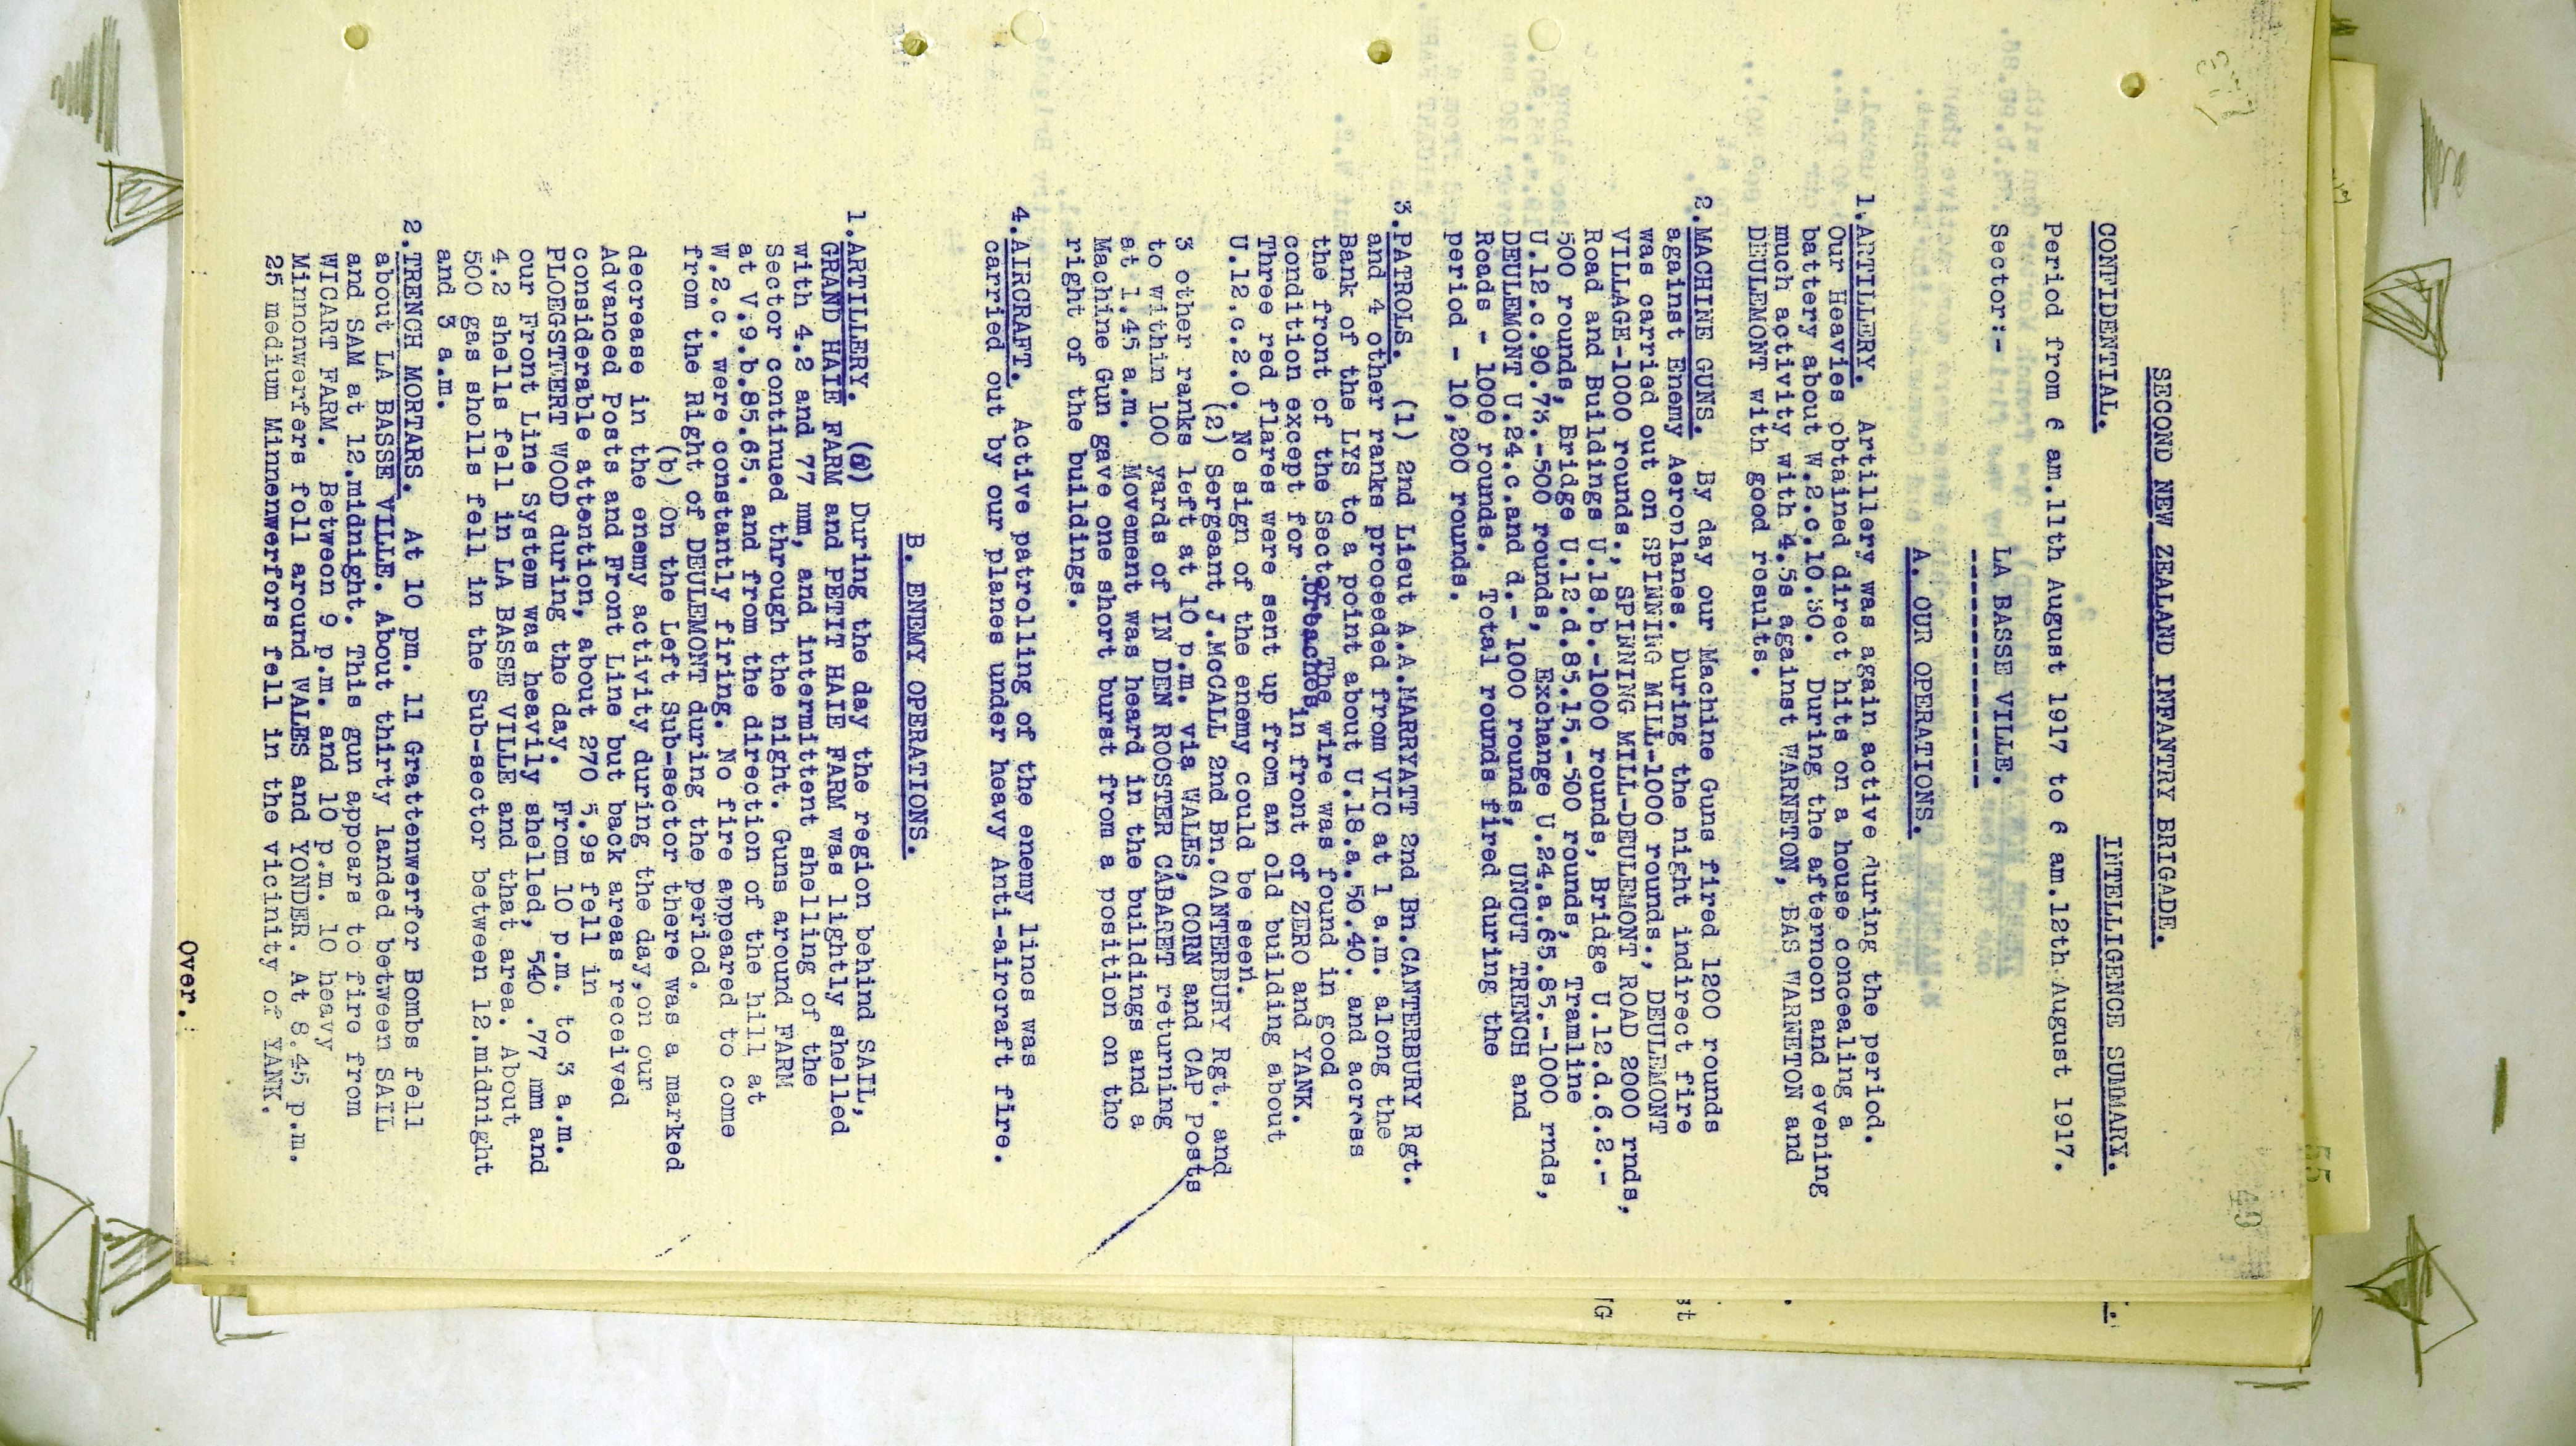 55
49
SECOND NEW ZEALAND INFANTRY BRIGADE.
CONFIDENTIAL. INTELLIGENCE SUMMARY.
Period from 6 am.11th August 1917 to 6 am.12th August 1917.
Sector:- LA BASSE VILLE.
-------------
A. OUR OPERATIONS.
1.ARTILLERY. Artillery was again active during the period.
Our Heavies obtained direct hits on a house concealing a
battery about W.2.c.10.30. During the afternoon and evening
much activity with 4.5s against WARNETON, BAS WARNETON and
DEULEMONT with good results.
2.MACHINE GUNS. By day our Machine Guns fired 1200 rounds
against Enemy Aeroplanes. During the night indirect fire
was carried out on SPINNING MILL-1000 rounds., DEULEMONT
VILLAGE-1000 rounds., SPINNING MILL-DEULEMONT ROAD 2000 rnds,
Road and Buildings U.18.b.-1000 rounds, Bridge U.12.d.6.2.-
500 rounds, Bridge U.12.d.85.15.-500 rounds, Tramline
U.12.c.90.73.-500 rounds, Exchange U.24.a.65.85.-1000 rnds,
DEULEMONT U.24.c.and d.- 1000 rounds, UNCUT TRENCH and
Roads - 1000 rounds. Total rounds fired during the
period - 10,200 rounds.
3.PATROLS. (1) 2nd Lieut A.A.MARRYATT 2nd Bn.CANTERBURY Rgt.
and 4 other ranks proceeded from VIC at 1 a.m. along the
Bank of the LYS to a point about U.18.a.50.40. and across
the front of the Sector The wire was found in good
condition except for breaches in front of ZERO and YANK.
Three red flares were sent up from an old building about
U.12.c.2.0. No sign of the enemy could be seen.
(2) Sergeant J.McCALL 2nd Bn.CANTERBURY Rgt. and
3 other ranks left at 10 p.m. via WALES, CORN and CAP Posts
to within 100 yards of IN DEN ROOSTER CABARET returning
at 1.45 a.m. Movement was heard in the buildings and a
Machine Gun gave one short burst from a position on the
right of the buildings.
4.AIRCRAFT. Active patrolling of the enemy lines was
carried out by our planes under heavy Anti-aircraft fire.
B. ENEMY OPERATIONS.
1.ARTILLERY. (a) During the day the region behind SAIL,
GRAND HAIE FARM and PETIT HAIE FARM was lightly shelled
with 4.2 and 77 mm, and intermittent shelling of the
Sector continued through the night. Guns around FARM
at V.9.b.85.65. and from the direction of the hill at
W.2.c. were constantly firing. No fire appeared to come
from the Right of DEULEMONT during the period.
(b) On the Left Sub-sector there was a marked
decrease in the enemy activity during the day,on our
Advanced Posts and Front Line but back areas received
considerable attention, about 270 5.9s fell in
PLOEGSTEERT WOOD during the day. From 10 p.m. to 3 a.m.
our Front Line System was heavily shelled, 540 .77 mm and
4.2 shells fell in LA BASSE VILLE and that area. About
500 gas shells fell in the Sub-sector between 12.midnight
and 3 a.m.
2.TRENCH MORTARS. At 10 pm. 11 Grattenwerfor Bombs fell
about LA BASSE VILLE. About thirty landed between SAIL
and SAM at 12.midnight. This gun appears to fire from
WICART FARM. Between 9 p.m. and 10 p.m. 10 heavy
Minnonwerfers fell around WALES and YONDER. At 8.45 p.m.
25 medium Minnenwerfors fell in the vicinity of YANK.
Over.